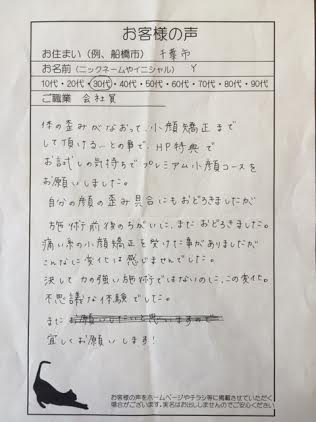 お客様の声
お住まい（例、船橋市） 千葉市
お名前（ニックネームやイニシャル） Y
10代・20代・30代・40代・50代・60代・70代・80代・90代
ご職業 会社員
体の歪みがなおって、小顔矯正まで
して頂ける…との事で、HP特典で
お試しの気持ちでプレミアム小顔コースを
お願いしました。
自分の顔の歪み具合にもおどろきましたが
施術前後のちがいに、またおどろきました。
痛い系の小顔矯正を受けた事がありましたが
こんなに変化は感じませんでした。
決して力の強い施術ではないのに、この変化。
不思議な体験でした。
また お願いしたいと思いますので
宜しくお願いします!
お客様の声をホームページやチラシ等に掲載させていただく
場合がございます。実名はお出ししませんのでご安心ください